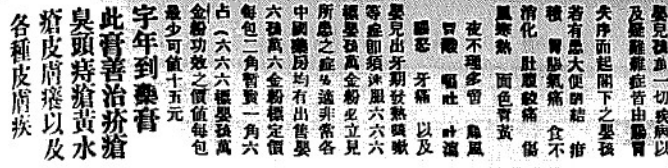 嬰兒孩萬一切疾病以
及疑難雜症皆由腸胃
失序而起閣下之嬰孩
若有患大便閉結 疳
積 胃腸氣痛 食不
消化 肚腹絞痛 傷
風寒熱 面色青黃
夜不理多哥 急風
胃酸 嘔吐 吐瀉
咽惡 牙痛 以及
嬰兒出牙期發熱咳嗽
等症卽須速服六六六
標嬰孩萬金粉必立見
所患之症 適非常各
中國藥房均有出售嬰
六孩萬六金粉標定價
每包二角暫賣一角六
占(六六六標嬰孩萬
金粉功效之價值每包
最少可值十五元
字年到藥膏
此膏善治疥瘡
臭頭痔瘡黃水
瘡皮膚癢以及
各種皮膚疾